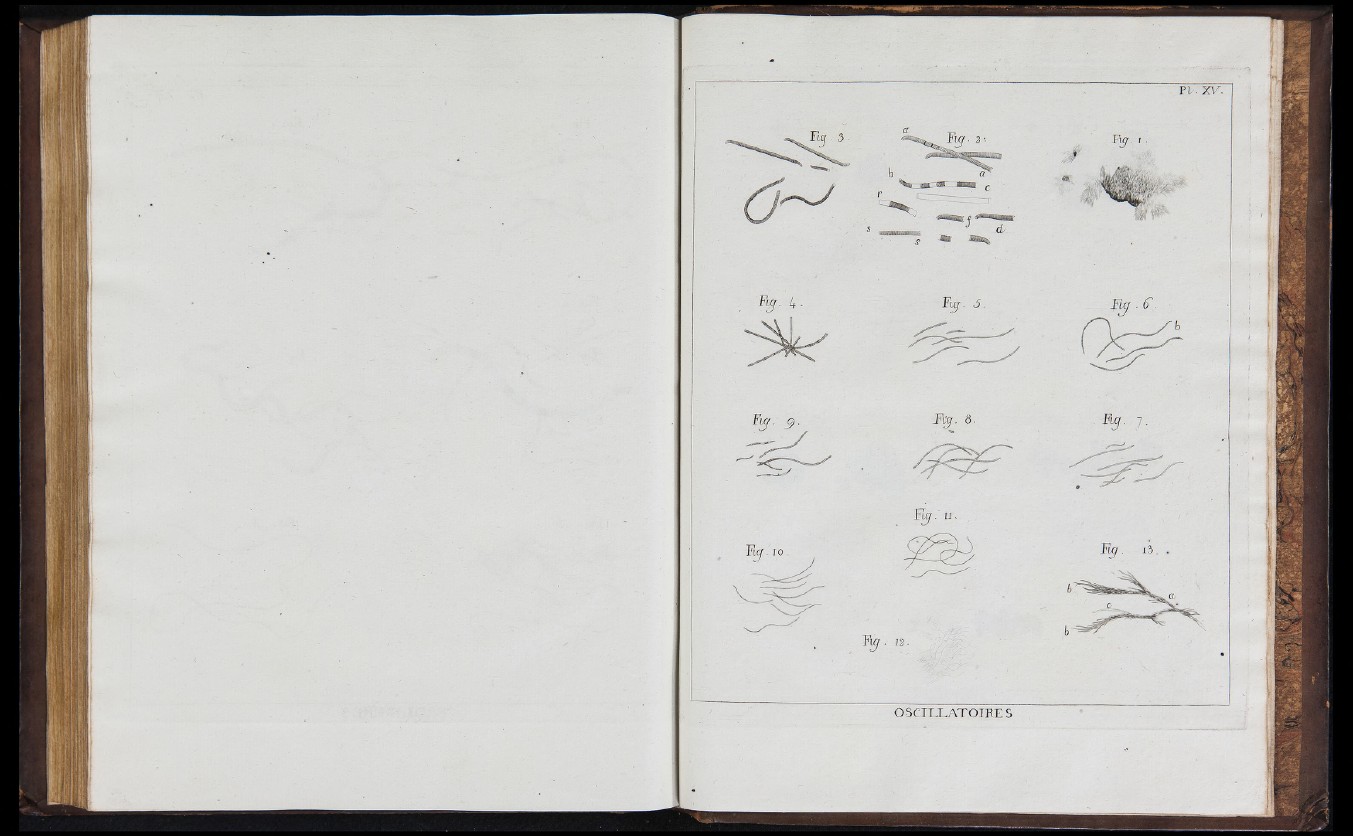 PL. XV.
Fig. 3
a Fig. 2. Fig. 1.
a
b
c
r
f
s d
s
Fig. 4. Fig. 5. Fig. 6
b
Fig. 9. Fig. 8. Fig. 7.
Fig. 11.
Fig. 10 Fig. 13.
b a
c
b
Fig. 12.
OSCILLATOIRES